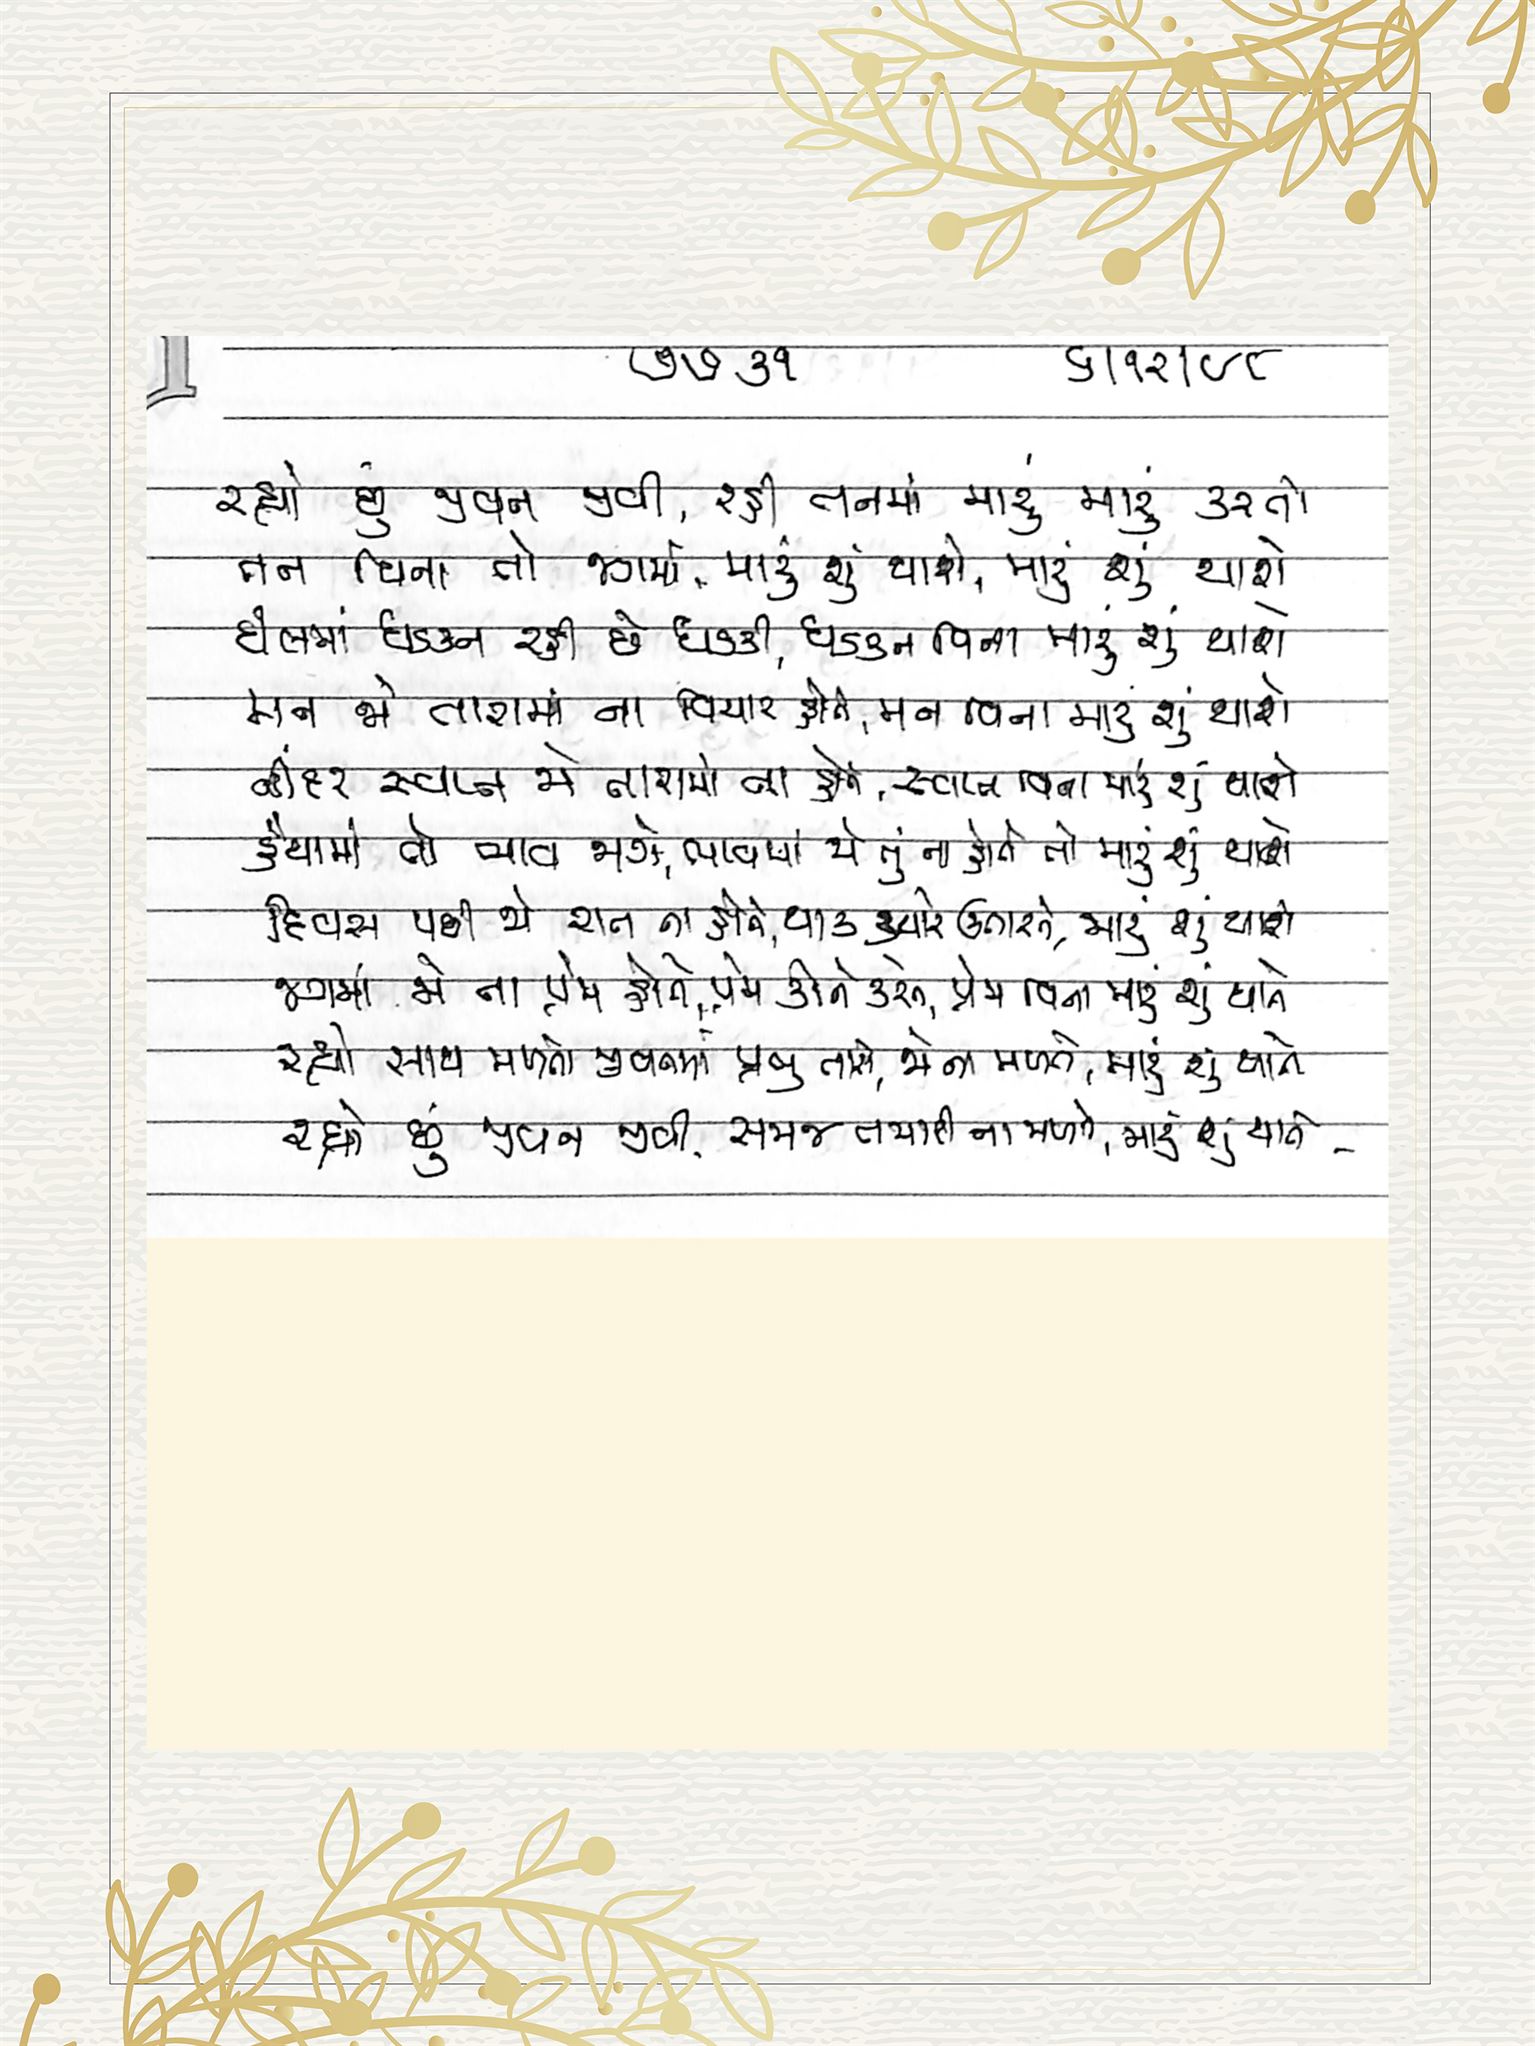 ૭૭૩૧ ૬।૧૨।૯૮
રહ્યો છું જીવન જીવી, રહી તનમાં મારું મારું કરતો
તન વિના તો જગમાં, મારું શું થાશે, મારું શું થાશે
દીલમાં ધડકન રહી છે ધડકી, ધડકન વિના મારું શું થાશે
મન જો તારામાં ના વિચાર હોતે, મન વિના મારું શું થાશે
નીંદર સ્વપ્ન જો તારામાં ના હોતે, સ્વપ્ન વિના મારું શું થાશે
હૈયામાં તો ભાવ જાગે, ભાવમાં જો તું ના હોતે તો મારું શું થાશે
દિવસ પછી જો રાત ના હોતે, થાક ક્યારે ઉતારતે, મારું શું થાશે
જગમાં જો ના પ્રેમ હોતે, પ્રેમ કોને કરતે, પ્રેમ વિના મારું શું થાતે
રહ્યો સાથ મળતો જીવનમાં પ્રભુ તારો, જો ના મળતે, મારું શું થાતે
રહ્યો છું જીવન જીવી, સમજ તમારી ના મળતે, મારું શું થાતે -